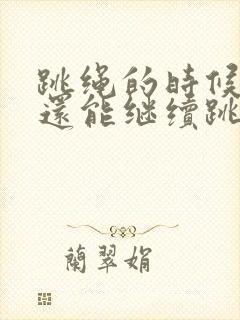 跳绳的時候
還能继續跳
蘭翠娟